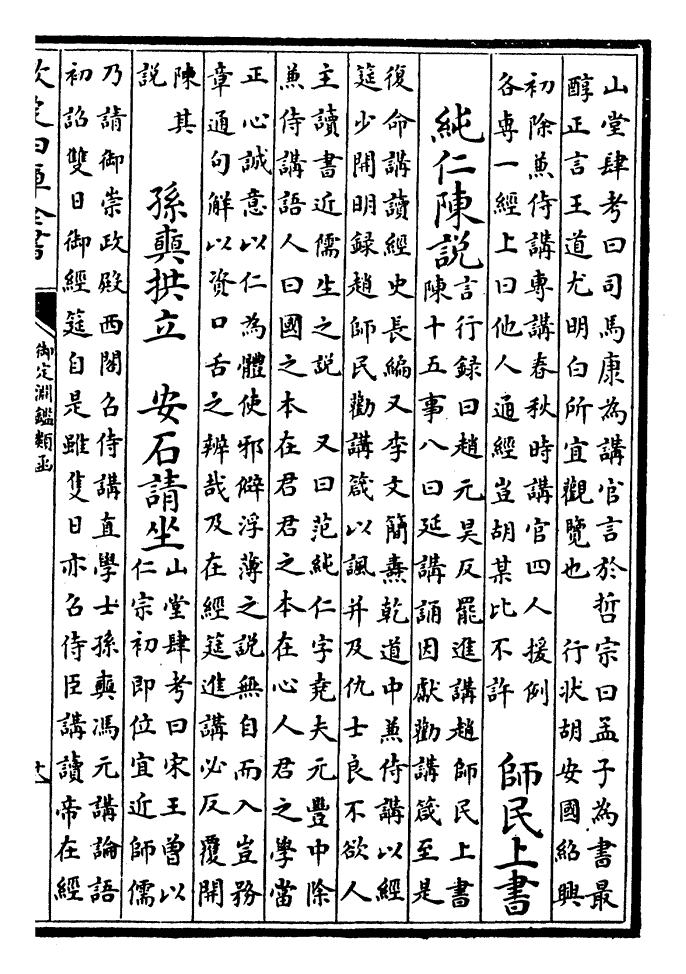 山堂肆考曰司馬康為講官言於哲宗曰孟子為書最
醇正言王道尤明白所宜觀覽也　行狀胡安國紹興
初除兼侍講專講春秋時講官四人援例
各專一經上曰他人通經豈胡某比不許
師民上書
純仁陳說
言行録曰趙元昊反罷進講趙師民上書
陳十五事八曰延講誦因獻勸講箴至是
復命講讀經史長編又李文簡燾乾道中兼侍講以經
筵少開明録趙師民勸講箴以諷并及仇士良不欲人
主讀書近儒生之說　又曰范純仁字堯夫元豐中除
兼侍講語人曰國之本在君君之本在心人君之學當
正心誠意以仁為體使邪僻浮薄之說無自而入豈務
章通句解以資口舌之辨哉及在經筵進講必反覆開
陳其
說
孫奭拱立　安石請坐
山堂肆考曰宋王曾以
仁宗初即位宜近師儒
乃請御崇政殿西閣召侍講直學士孫奭馮元講論語
初詔雙日御經筵自是雖隻日亦召侍臣講讀帝在經
欽定四庫全書
御定淵鑑類函